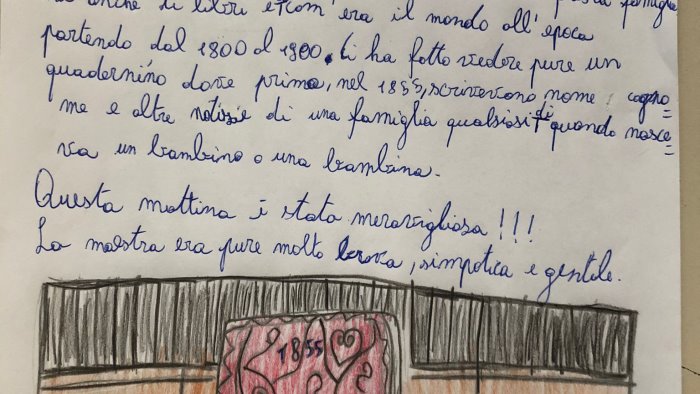 anche di libri e com'era il mondo all'epoca
partendo dal 1800 al 1900. Ci ha fatto vedere pure un
quadernino dove prima, nel 1855, scrivevcono nome, cogno=
me e altre notizie di una famiglia qualsiasi di quando nasce=
va un bambino o una bambina.
Questa mattina è stata meravigliosa!!!
La maestra era pure molto brava, simpatica e gentile.
1855